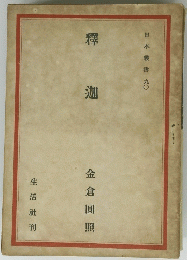 日本叢書九〇
釋迦
金倉圓照
生活社刊